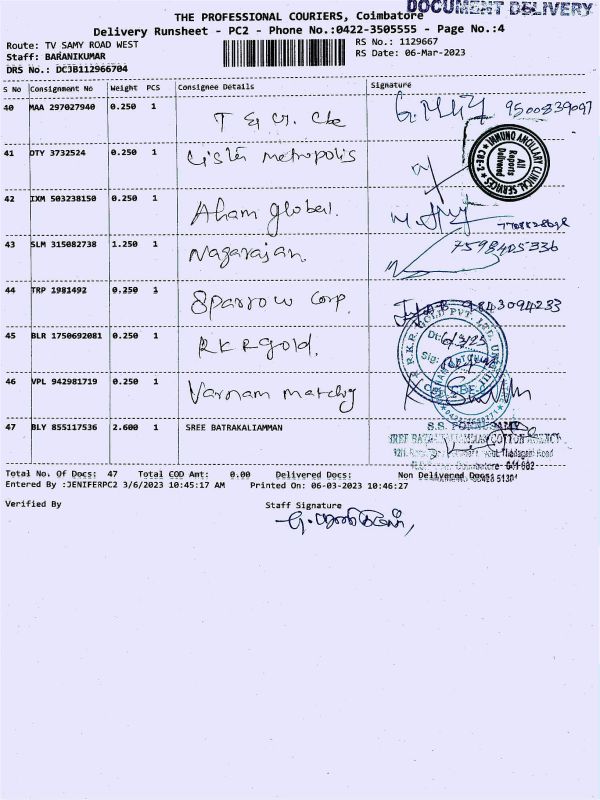 THE PROFESSIONAL COURIERS, Coimbatore
DOCUMENT DELIVERY
Delivery Runsheet - PC2 - Phone No.:0422-3505555 - Page No.:4
Route: TV SAMY ROAD WEST
RS No.: 1129667
Staff: BARANIKUMAR
RS Date: 06-Mar-2023
DRS No.: DCJB112966704
S No Consignment No Weight PCS Consignee Details Signature
40 MAA 297027940 0.250 1
T & G. Cbe
9500839097
41 DTY 3732524 0.250 1 Metropolis
IMMUNO ANCILLARY CLINICAL SERVICES
CBE-2
All Reports Delivered
42 IXM 503238150 0.250 1
Aham global.
43 SLM 315082738 1.250 1 Nagarajan.
7598405336
44 TRP 1981492 0.250 1
Sparrow Corp.
9843094283
45 BLR 1750692081 0.250 1
RKR gold.
R.K.R. GOLD PVT. LTD. UNIT
Dt: 6/3/23
Sig:
46 VPL 942981719 0.250 1 Varnam
47 BLY 855117536 2.600 1 SREE BATRAKALIAMMAN
S.S.
COTTON AGENCY
Total No. Of Docs: 47 Total COD Amt: 0.00 Delivered Docs: Non Delivered Docs:
Entered By :JENIFERPC2 3/6/2023 10:45:17 AM Printed On: 06-03-2023 10:46:27
Verified By Staff Signature